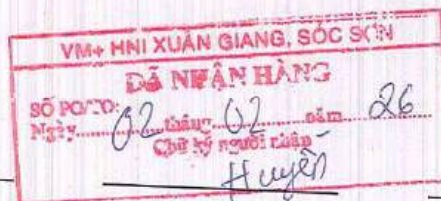 VM+ HNI XUÂN GIANG, SÓC SƠN
ĐÃ NHẬN HÀNG
SỐ PO/TO:
Ngày 02 tháng 02 năm 26
Chữ ký người nhận
Huyền